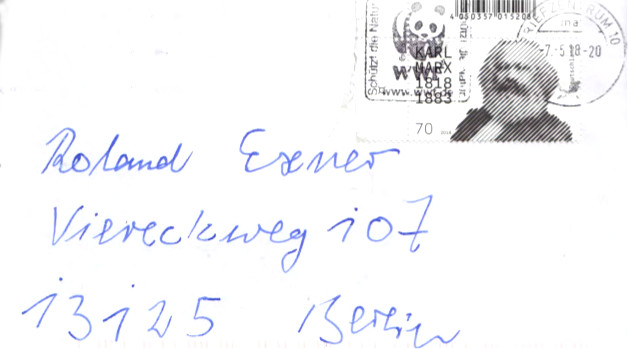 4 050357 015208
BRIEFZENTRUM 10
Schützt die Natur
ma
-7.-5 18-20
KARL
MARX
1818
1883
WWF
www.wwf.de
70
Roland Exner
Viereckweg 107
13125 Berlin